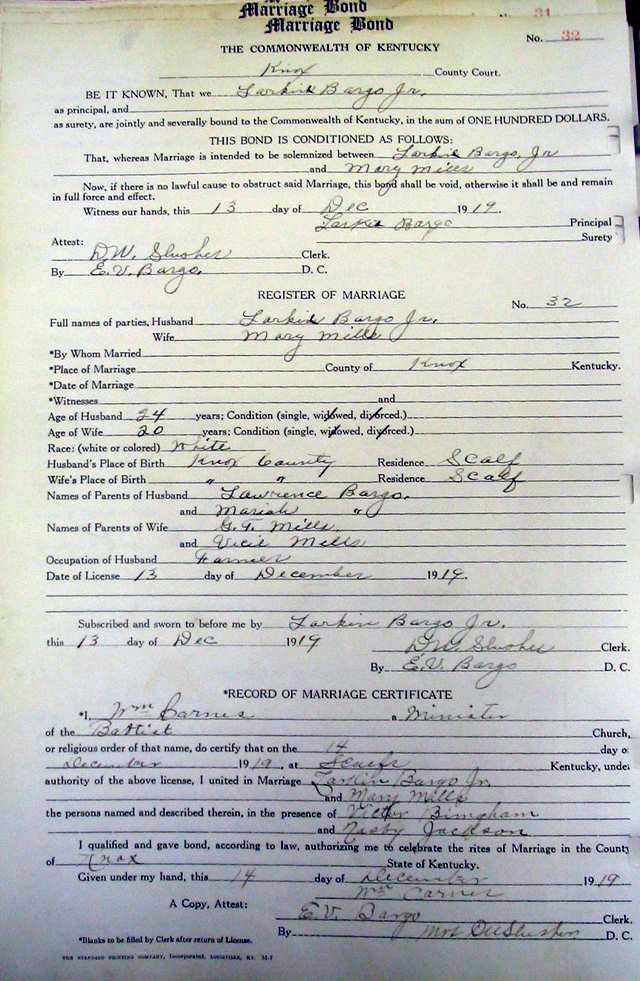 Marriage Bond
No. 31
Marriage Bond
No. 32
THE COMMONWEALTH OF KENTUCKY
Knox County Court.
BE IT KNOWN, That we Larkin Bargo Jr.
as principal, and
as surety, are jointly and severally bound to the Commonwealth of Kentucky, in the sum of ONE HUNDRED DOLLARS.
THIS BOND IS CONDITIONED AS FOLLOWS:
That, whereas Marriage is intended to be solemnized between Larkin Bargo, Jr
and Mary Mills
Now, if there is no lawful cause to obstruct said Marriage, this bond shall be void, otherwise it shall be and remain
in full force and effect.
Witness our hands, this 13 day of Dec 1919.
Larkin Bargo Principal
Surety
Attest:
D.W. Slusher Clerk.
By E.V. Bargo. D. C.
REGISTER OF MARRIAGE
No. 32
Full names of parties, Husband Larkin Bargo Jr.
Wife Mary Mills
*By Whom Married
*Place of Marriage County of Knox Kentucky.
*Date of Marriage
*Witnesses and
Age of Husband 24 years; Condition (single, widowed, divorced.)
Age of Wife 20 years; Condition (single, widowed, divorced.)
Race: (white or colored) White
Husband's Place of Birth Knox County Residence Scalf
Wife's Place of Birth " " Residence Scalf
Names of Parents of Husband Lawrence Bargo.
and Mariah "
Names of Parents of Wife G.T. Mills.
and Vicie Mills
Occupation of Husband Farmer
Date of License 13 day of December 1919.
Subscribed and sworn to before me by Larkin Bargo Jr.
this 13 day of Dec 1919
D.W. Slusher Clerk.
By E.V. Bargo D. C.
*RECORD OF MARRIAGE CERTIFICATE
*I, Wm Carnes a Minister
of the Baptist Church,
or religious order of that name, do certify that on the 14 day o
December 1919, at Scalfs Kentucky, unde
authority of the above license, I united in Marriage Larkin Bargo Jr.
and Mary Mills
the persons named and described therein, in the presence of Victor Bingham
and Nasby Jackson
I qualified and gave bond, according to law, authorizing me to celebrate the rites of Marriage in the County
of Knox State of Kentucky.
Given under my hand, this 14 day of December 1919
Wm Carnes
A Copy, Attest: E.V. Bargo Clerk.
By Mrs D. C.
*Blanks to be filled by Clerk after return of License.
THE STANDARD PRINTING COMPANY, Incorporated, LOUISVILLE, KY.